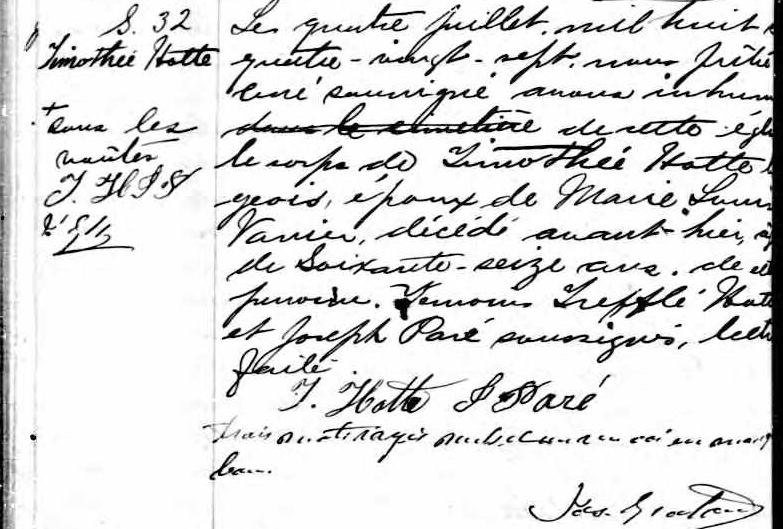 S. 32
Timothée Hotte
+
sous les
voûtes
T. H J P
Les quatre juillet, mil huit
quatre-vingt-sept, nous prêtre
curé soussigné avons inhum
dans le cimetière de cette égl
le corps de Timothée Hotte
geois, époux de Marie Loui
Vanier, décédé avant-hier,
de Soixante-seize ans. de
paroisse. Témoins Trefflé Hott
et Joseph Paré soussignés, lect
faite.
T. Hotte J Paré
trois mots rayés
bon.
Jos.